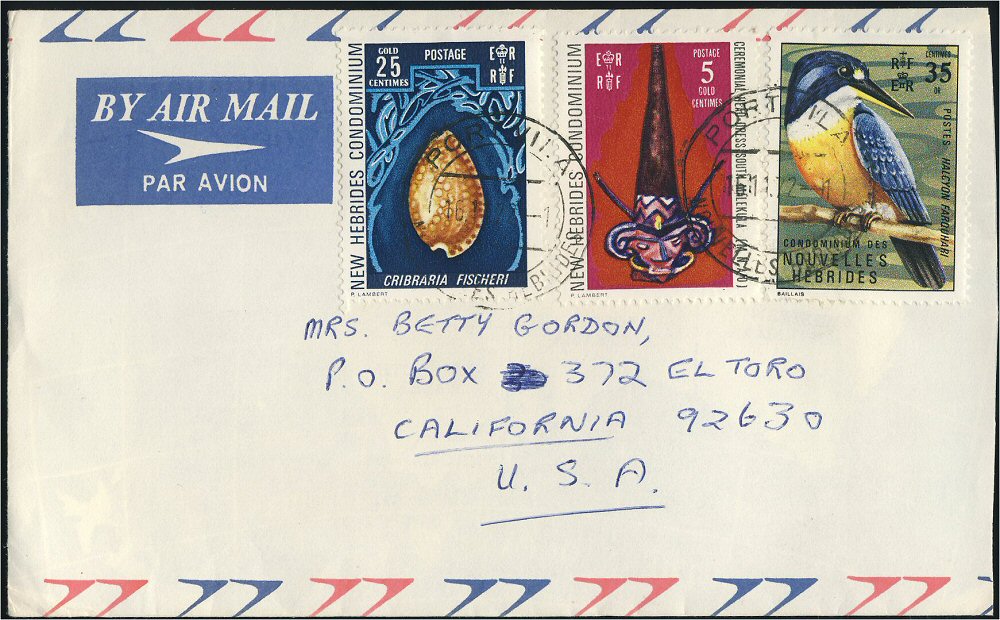 BY AIR MAIL
PAR AVION
NEW HEBRIDES CONDOMINIUM
GOLD
25
CENTIMES
POSTAGE
E R
R F
CRIBRARIA FISCHERI
P. LAMBERT
NEW HEBRIDES CONDOMINIUM
E R
R F
POSTAGE
5
GOLD
CENTIMES
CEREMONIAL HEAD-DRESS (SOUTH MALEKULA
P. LAMBERT
R F
E R
CENTIMES
35
OR
POSTES HALCYON FARQUHARI
CONDOMINIUM DES
NOUVELLES
HEBRIDES
BAILLAIS
PORT VILA
PORT VILA
MRS. BETTY GORDON,
P.O. BOX 372 EL TORO
CALIFORNIA 92630
U. S. A.